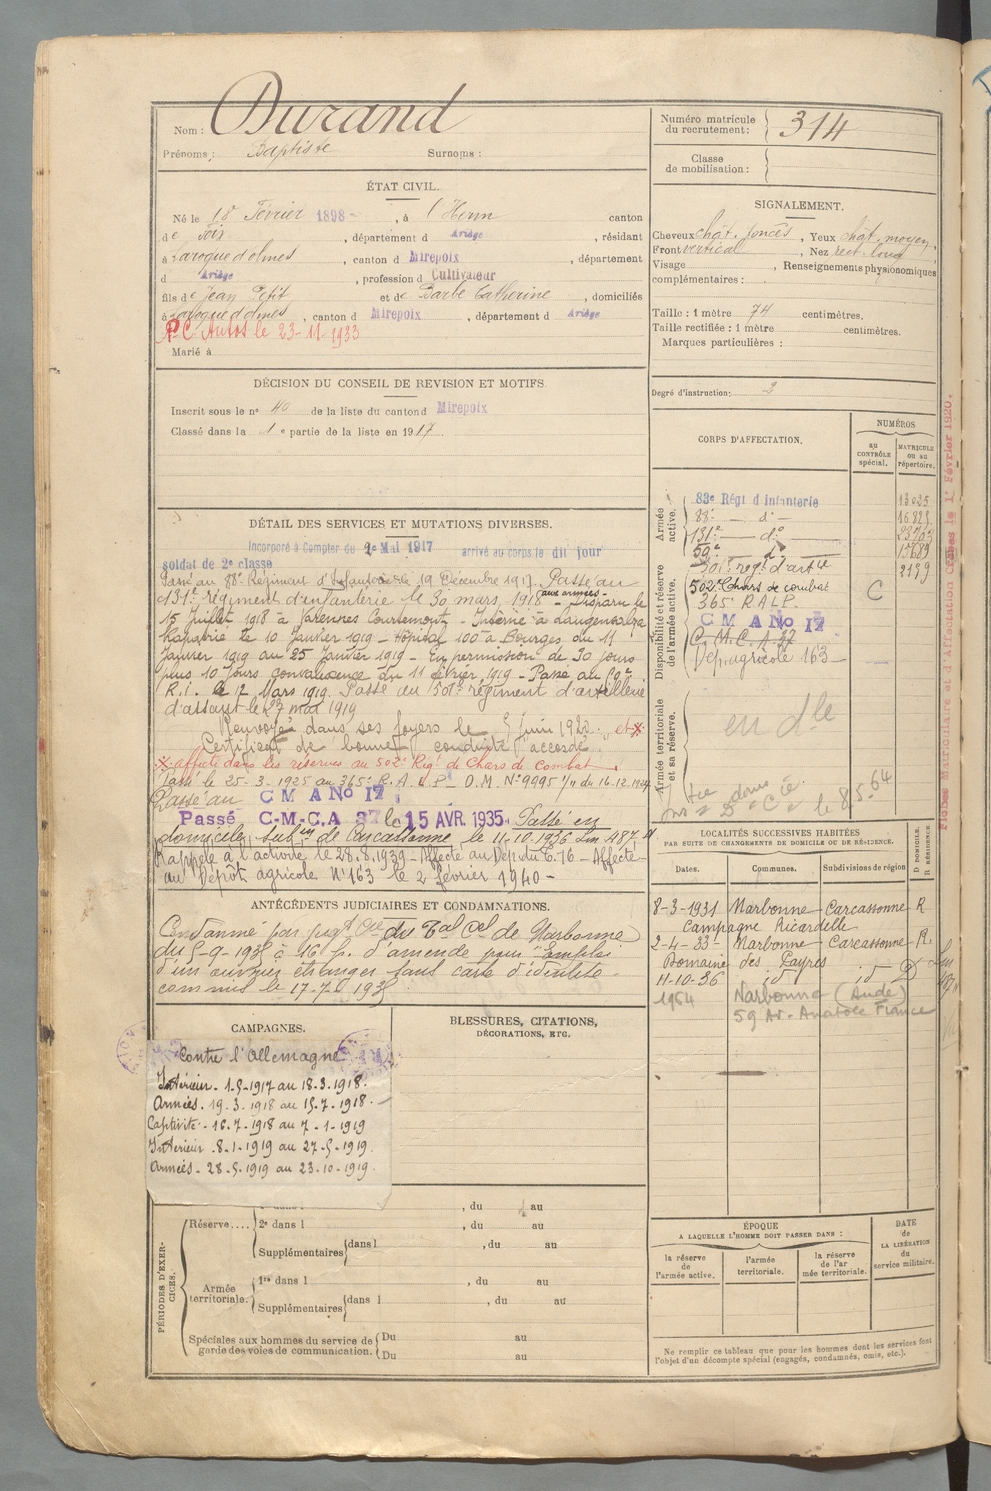 Nom : Durand
Prénoms : Baptiste Surnoms :
ÉTAT CIVIL.
Né le 18 Février 1898 , à l'Herm canton
de Foix , département d Ariège , résidant
à Laroque d'olmes , canton d Mirepoix , département
d Ariège , profession d Cultivateur
fils de Jean Petit et de Barbe Catherine , domiciliés
à Laroque d'olmes , canton d Mirepoix , département d Ariège
P.C. Autos le 23-11-1933
Marié à
DÉCISION DU CONSEIL DE REVISION ET MOTIFS
Inscrit sous le n° 40 de la liste du canton d Mirepoix
Classé dans la 1 e partie de la liste en 1917.
DÉTAIL DES SERVICES ET MUTATIONS DIVERSES.
Incorporé à Compter du 2 Mai 1917 arrivé au corps le dit jour
soldat de 2e classe
Passé au 88e Régiment d'Infanterie le 19 Décembre 1917. Passé au
131e régiment d'infanterie le 30 mars 1918 aux armées - Disparu le
15 Juillet 1918 à Varennes Courtemont - Interné à Langensalza
Rapatrié le 10 Janvier 1919 - Hopital 100 à Bourges du 11
Janvier 1919 au 25 Janvier 1919 - En permission de 30 jours
plus 10 jours convalescence du 11 février 1919 - Passé au 59e
R.I. le 12 Mars 1919. Passé au 501e régiment d'artillerie
d'assaut le 27 mai 1919
Renvoyé dans ses foyers le 5 Juin 1920 et x
Certificat de bonne conduite accordé.
x affecté dans les réserves au 502e Rigt de Chars de Combat.
Passé le 25-3-1925 au 365e R.A.L.P. O.M. N° 9995 1/11 du 16.12.1924
Passé au C M A No 17
Passé C-M-C.A 37 le 15 AVR. 1935. Passé en
domicile, subon de Carcassonne le 11-10-1936 Lm 487
Rappelé à l'activité le 28.8.1939 - Affecté au Dépôt du G. 76 - Affecté
au Dépôt agricole N° 163 le 2 février 1940 -
ANTÉCÉDENTS JUDICIAIRES ET CONDAMNATIONS.
Condamné par jugt du Bal Cel de Narbonne
du 5-9-1935 à 16 f. d'amende pour "Emploi
d'un ouvrier étranger sans carte d'identité
commis le 17-7-1935
CAMPAGNES.
Contre l'Allemagne
Intérieur - 1-5-1917 au 18-3-1918.
Armées - 19-3-1918 au 15-7-1918.
Captivité - 16-7-1918 au 7-1-1919
Intérieur - 8-1-1919 au 27-5-1919.
Armées - 28-5-1919 au 23-10-1919.
BLESSURES, CITATIONS,
DÉCORATIONS, ETC.
PÉRIODES D'EXER-
CICES.
, du au
Réserve.... 2e dans l , du au
Supplémentaires dans l , du au
Armée
territoriale.
1re dans l , du au
Supplémentaires dans l , du au
Spéciales aux hommes du service de
garde des voies de communication.
Du au
Du au
Numéro matricule
du recrutement : 314
Classe
de mobilisation :
SIGNALEMENT.
Cheveux chât. foncés , Yeux chât. moyen ,
Front vertical , Nez rect. long
Visage , Renseignements physionomiques
complémentaires :
Taille : 1 mètre 74 centimètres.
Taille rectifiée : 1 mètre centimètres.
Marques particulières :
Degré d'instruction : 2
CORPS D'AFFECTATION.
NUMÉROS
au
CONTRÔLE
spécial.
MATRICULE
ou au
répertoire.
Armée
active.
83e Régt d Infanterie 13025
88e — d° —
131e — d° —
59e — d° 15689
501e regt d'artie
Disponibilité et réserve
de l'armée active.
502e Chars de combat C
365e R A L P.
C M A No 17
C. M. C. A. 37
Dép. agricole 163 —
Armée territoriale
et sa réserve.
en dle
le 8.5.64
LOCALITÉS SUCCESSIVES HABITÉES
PAR SUITE DE CHANGEMENTS DE DOMICILE OU DE RÉSIDENCE.
Dates. Communes. Subdivisions de région D DOMICILE. R RÉSIDENCE
8-3-1931 Narbonne Carcassonne R
Campagne Ricardelle
2-4-33 - Narbonne Carcassonne R.
Domaine des Payres
11-10-36 id id D
1964 Narbonne (Aude)
59 Av. Anatole France
ÉPOQUE
A LAQUELLE L'HOMME DOIT PASSER DANS :
la réserve
de
l'armée active.
l'armée
territoriale.
la réserve
de l'ar
mée territoriale.
DATE
de
LA LIBÉRATION
du
service militaire.
Ne remplir ce tableau que pour les hommes dont les services font
l'objet d'un décompte spécial (engagés, condamnés, omis, etc.).
Fiches Matriculaire et d'Affectation le 1r Février 1920.